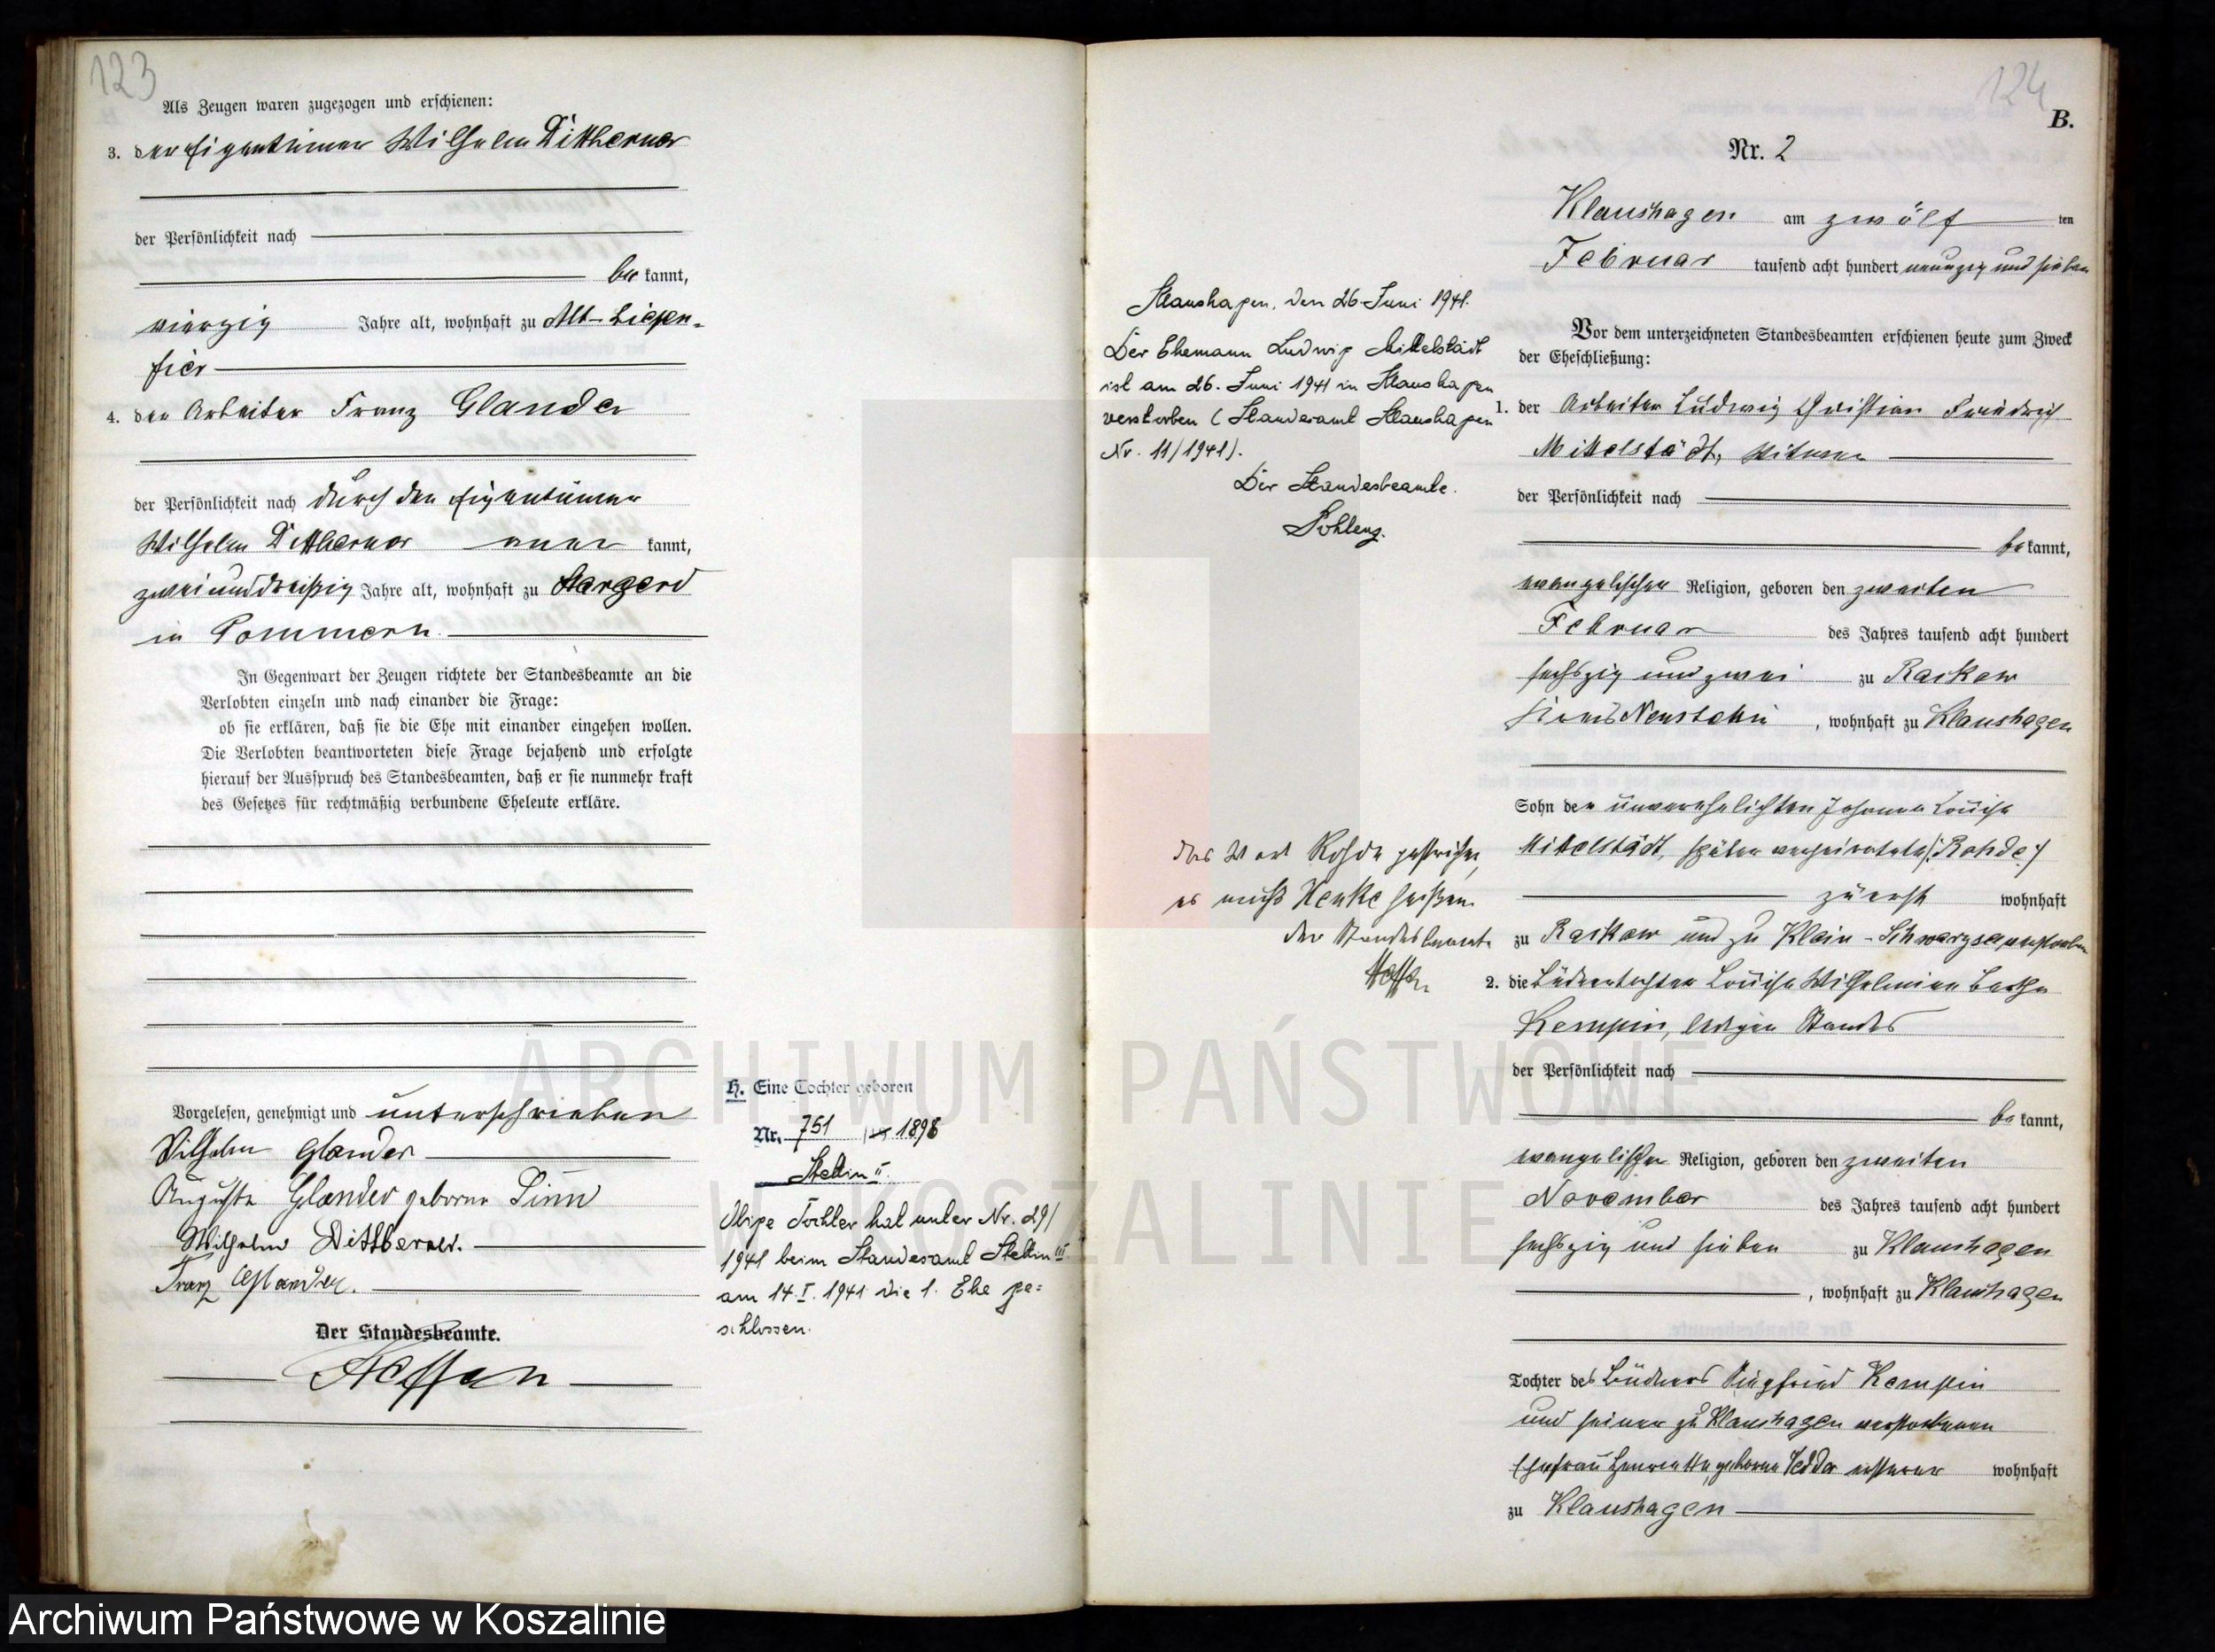 123
Als Zeugen waren zugezogen und erschienen:
3. der Eigentümer Wilhelm Dittberner
der Persönlichkeit nach
be kannt,
vierzig Jahre alt, wohnhaft zu Alt-Liepen-
fier
4. der Arbeiter Franz Glander
der Persönlichkeit nach durch den Eigentümer
Wilhelm Dittberner aner kannt,
zweiunddreißig Jahre alt, wohnhaft zu Stargard
in Pommern.
In Gegenwart der Zeugen richtete der Standesbeamte an die
Verlobten einzeln und nach einander die Frage:
ob sie erklären, daß sie die Ehe mit einander eingehen wollen.
Die Verlobten beantworteten diese Frage bejahend und erfolgte
hierauf der Ausspruch des Standesbeamten, daß er sie nunmehr kraft
des Gesetzes für rechtmäßig verbundene Eheleute erkläre.
Vorgelesen, genehmigt und unterschrieben
Wilhelm Glander
Auguste Glander geborne Timm
Wilhelm Dittberner.
Franz Glander.
Der Standesbeamte.
Steffen
H. Eine Tochter geboren
Nr. 751 1898
Stettin II.
Obige Tochter hat unter Nr. 29/
1941 beim Standesamt Stettin III
am 14.I.1941 die 1. Ehe ge=
schlossen.
124
B.
Nr. 2
Klaushagen am zwölf ten
Februar tausend acht hundert neunzig und sieben
Vor dem unterzeichneten Standesbeamten erschienen heute zum Zweck
der Eheschließung:
1. der Arbeiter Ludwig Christian Friedrich
Mittelstädt, Witwer
der Persönlichkeit nach
be kannt,
evangelischer Religion, geboren den zweiten
Februar des Jahres tausend acht hundert
sechszig und zwei zu Rackow
Kreis Neustettin, wohnhaft zu Klaushagen
Sohn der unverehelichten Johanna Louise
Mittelstädt, später verheiratete /:Rohde:/
zuerst wohnhaft
zu Rackow und zu Klein-Schwarzsee verstorben
2. die Büdnertochter Louise Wilhelmine Bertha
Kempin, ledigen Standes
der Persönlichkeit nach
be kannt,
evangelischer Religion, geboren den zweiten
November des Jahres tausend acht hundert
sechszig und sieben zu Klaushagen
, wohnhaft zu Klaushagen
Tochter des Büdners Siegfried Kempin
und seiner zu Klaushagen verstorbenen
Ehefrau Henriette, geborne ersterer wohnhaft
zu Klaushagen
Klaushagen, den 26. Juni 1941.
Der Ehemann Ludwig Mittelstädt
ist am 26. Juni 1941 in Klaushagen
verstorben (Standesamt Klaushagen
Nr. 11/1941).
Der Standesbeamte.
Pohlenz.
das Wort Rohde gestrichen,
es muß Henke heißen.
der Standesbeamte
Steffen
ARCHIWUM PAŃSTWOWE
W KOSZALINIE
Archiwum Państwowe w Koszalinie